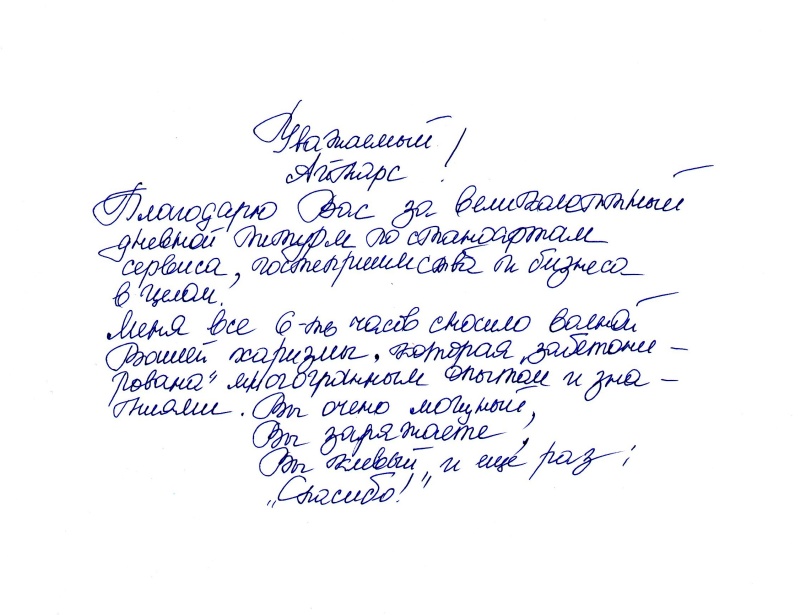 Уважаемый
Айварс !
Благодарю Вас за великолепный
дневной штурм по стандартам
сервиса, гостеприимства и бизнеса
в целом.
Меня все 6-ть часов сносило волной
Вашей харизмы, которая „забетони-
рована" многогранным опытом и зна-
ниями. Вы очень мощный,
Вы заряжаете,
Вы живый, и ещё раз:
„Спасибо!"